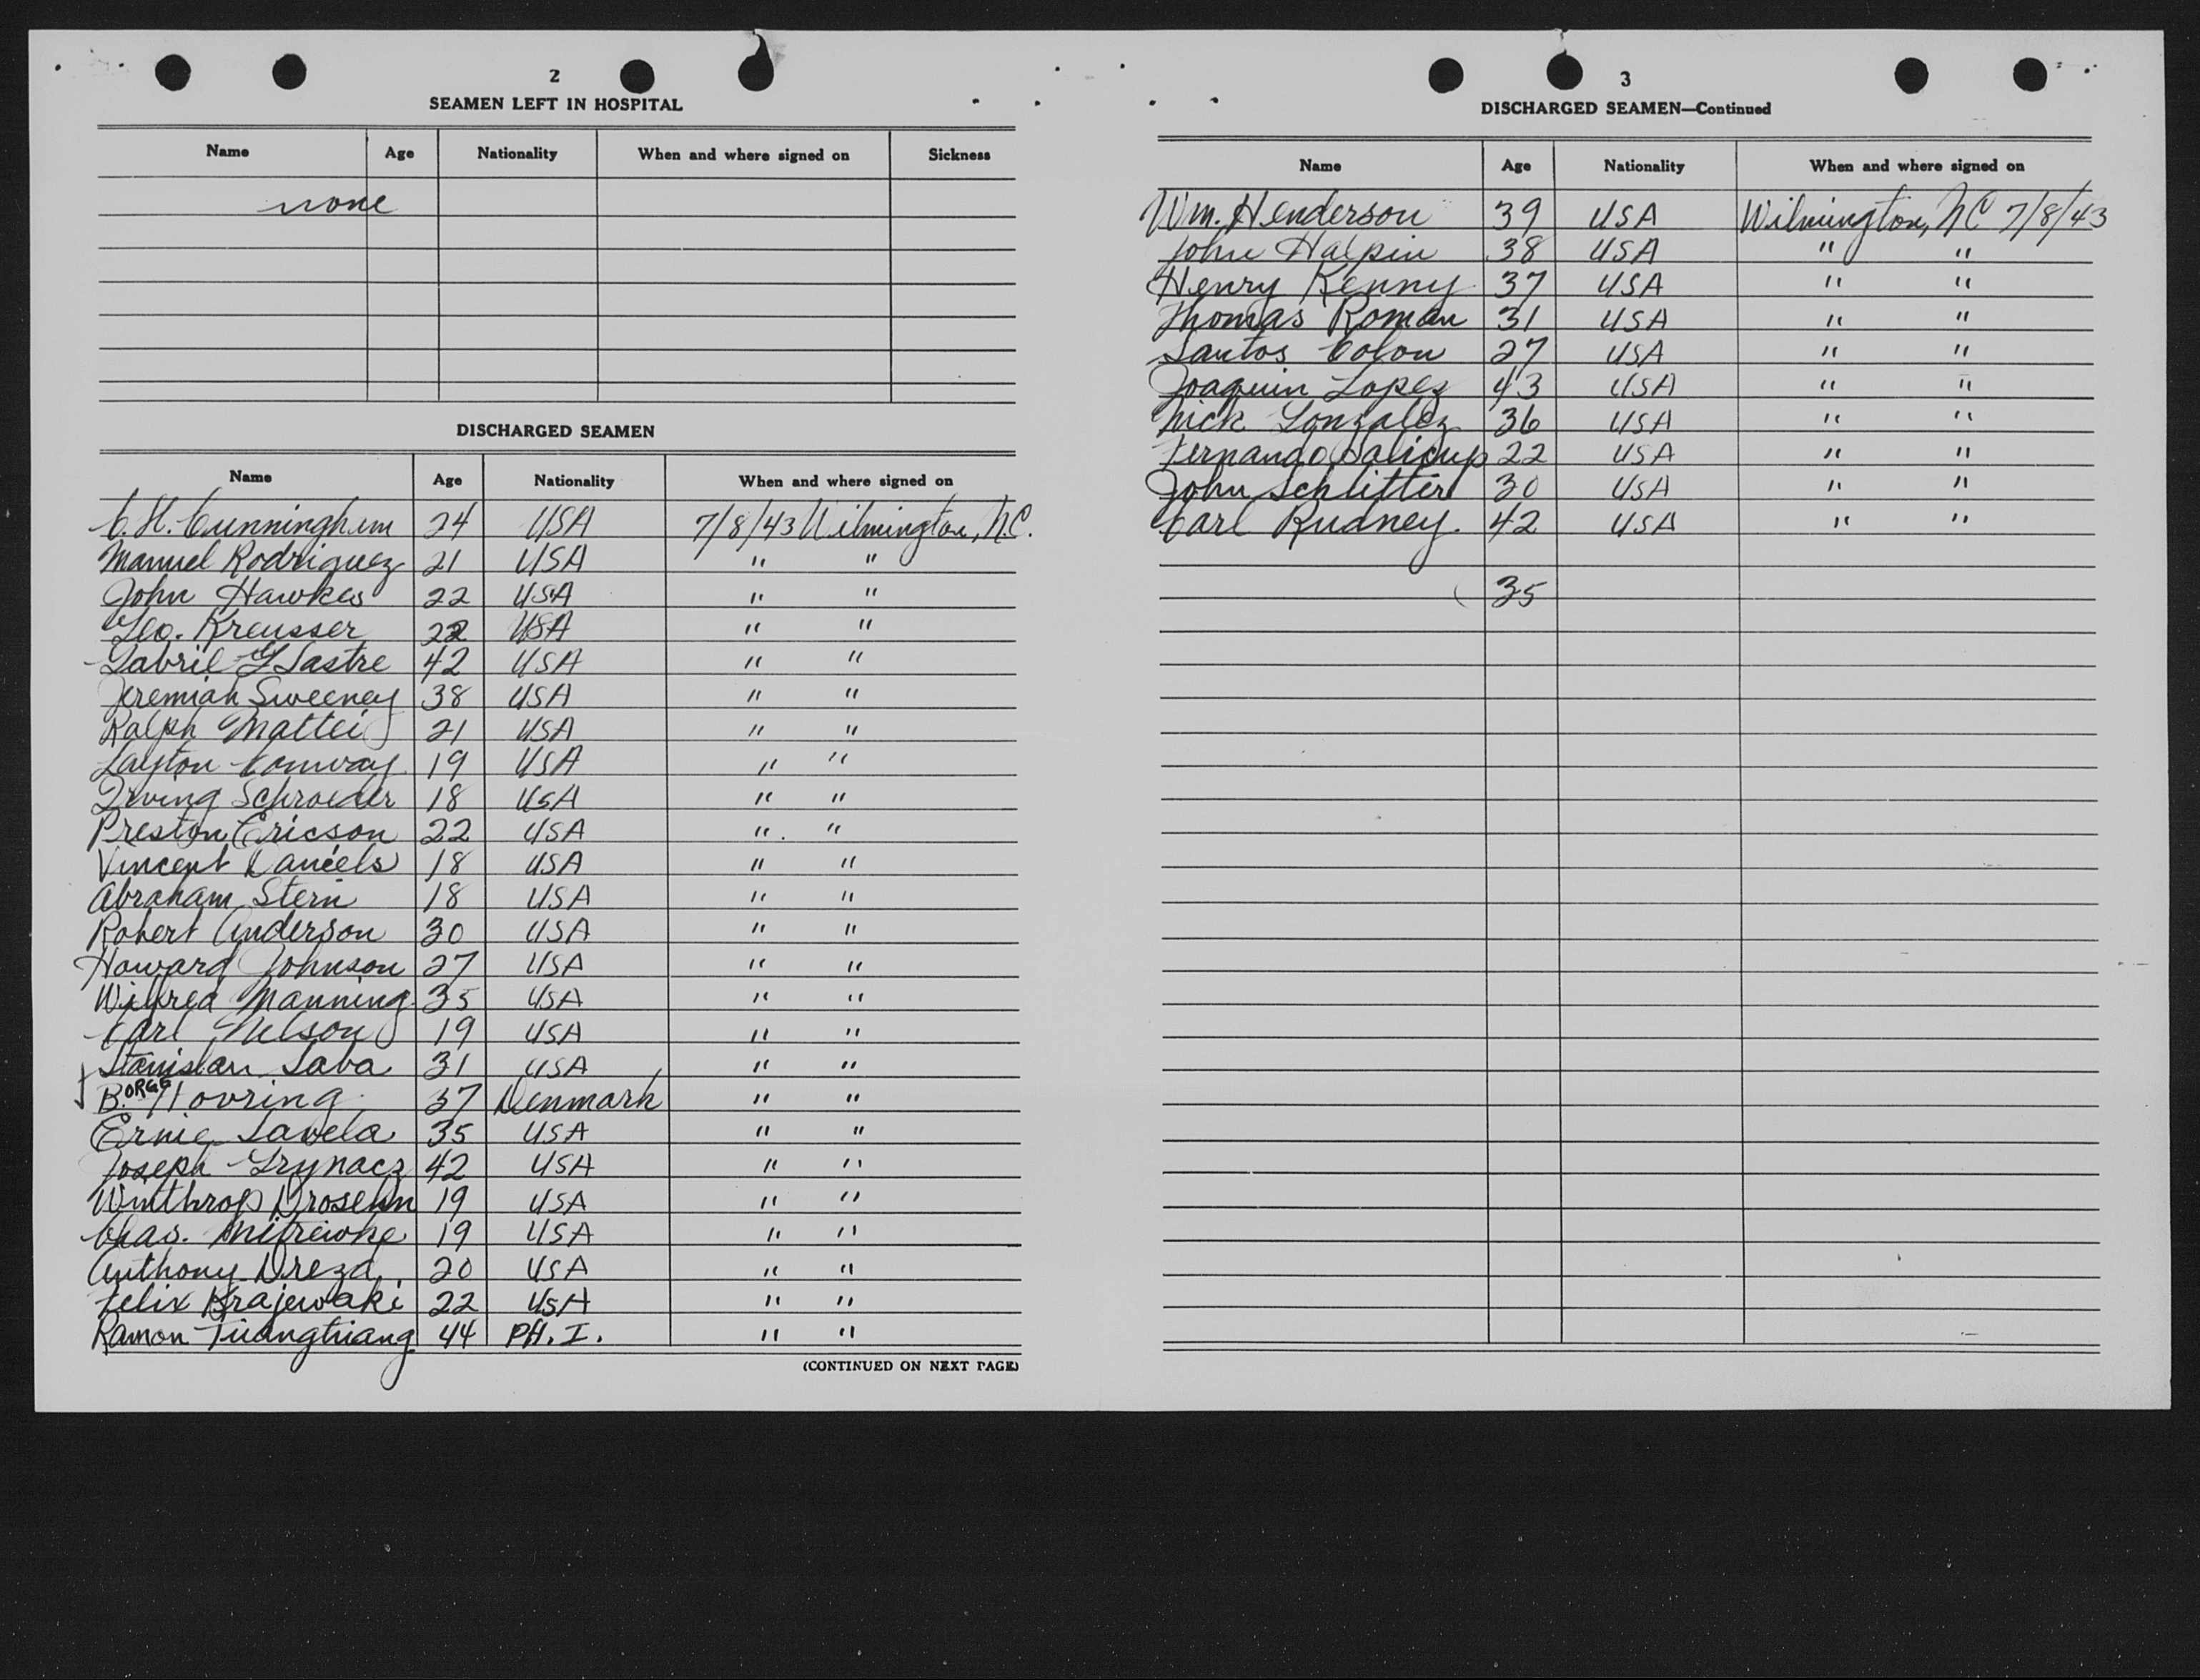 2
SEAMEN LEFT IN HOSPITAL
Name Age Nationality When and where signed on Sickness
none
DISCHARGED SEAMEN
Name Age Nationality When and where signed on
C. H. Cunningham 24 USA 7/8/43 Wilmington, N.C.
Manuel Rodriguez 21 USA " "
John Hawkes 22 USA " "
Geo. Kreusser 22 USA " "
Gabril G Sastre 42 USA " "
Jeremiah Sweeney 38 USA " "
Ralph Mattei 21 USA " "
Layton Conway 19 USA " "
Irving Schroeder 18 USA " "
Preston Ericson 22 USA " "
Vincent Daniels 18 USA " "
Abraham Stern 18 USA " "
Robert Anderson 30 USA " "
Howard Johnson 27 USA " "
Wilfred Manning 35 USA " "
Carl Nelson 19 USA " "
Stanislau Saba 31 USA " "
B. ORGE Hovring 37 Denmark " "
Ernie Savela 35 USA " "
Joseph Grynacz 42 USA " "
Winthrop 19 USA " "
Chas. 19 USA " "
Anthony Dreza 20 USA " "
Felix Krajewski 22 USA " "
Ramon Tiangtiang 44 PH. I. " "
(CONTINUED ON NEXT PAGE)
3
DISCHARGED SEAMEN—Continued
Name Age Nationality When and where signed on
Wm. Henderson 39 USA Wilmington, NC 7/8/43
John Halpin 38 USA " "
Henry Kenny 37 USA " "
Thomas Roman 31 USA " "
Santos Colon 27 USA " "
Joaquin Lopez 43 USA " "
Nick Gonzalez 36 USA " "
Fernando Salicup 22 USA " "
John Schlitter 30 USA " "
Carl Rudney 42 USA " "
35